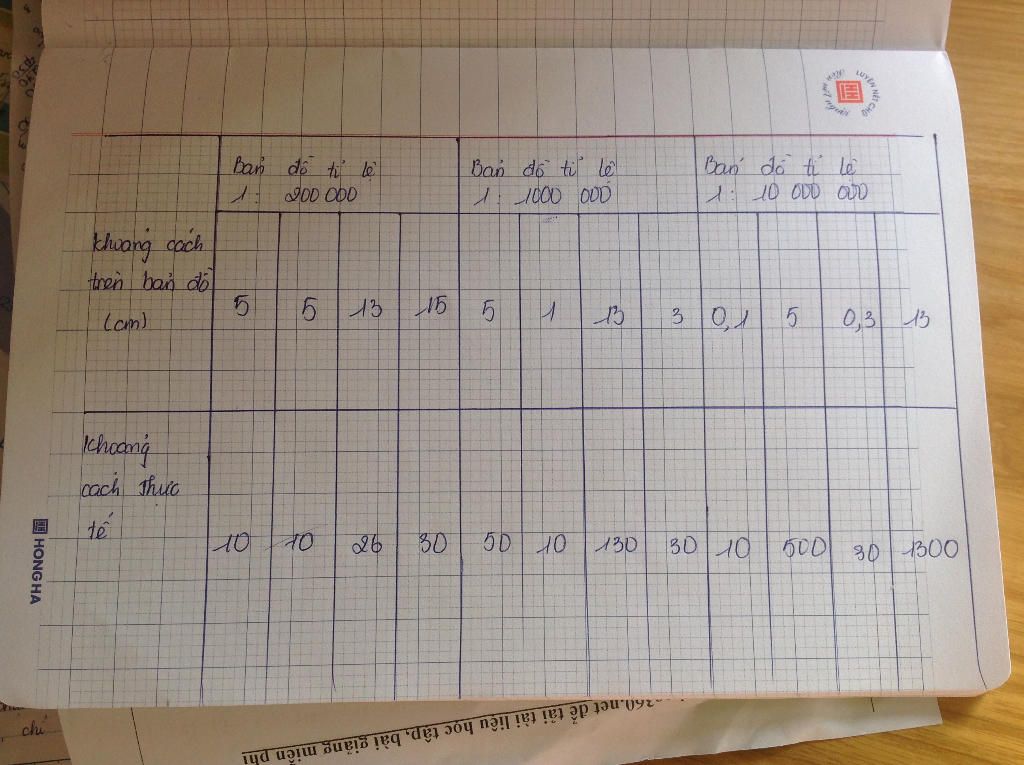 LUYỆN NÉT CHỮ
Rèn nết người
Bản đồ tỉ lệ
1 : 200 000
Bản đồ tỉ lệ
1 : 1000 000
Bản đồ tỉ lệ
1 : 10 000 000
Khoảng cách
trên bản đồ
(cm)
5 5 13 15 5 1 13 3 0,1 5 0,3 13
Khoảng
cách thực
tế
10 10 26 30 50 10 130 30 10 500 30 1300
HONG HA
360.net để tải tài liệu học tập, bài giảng miễn phí
chỉ